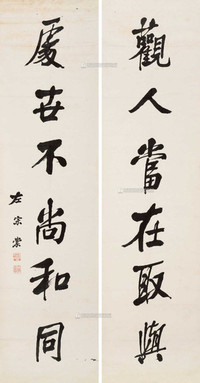 觀人當在取與
處世不尚和同
左宗棠